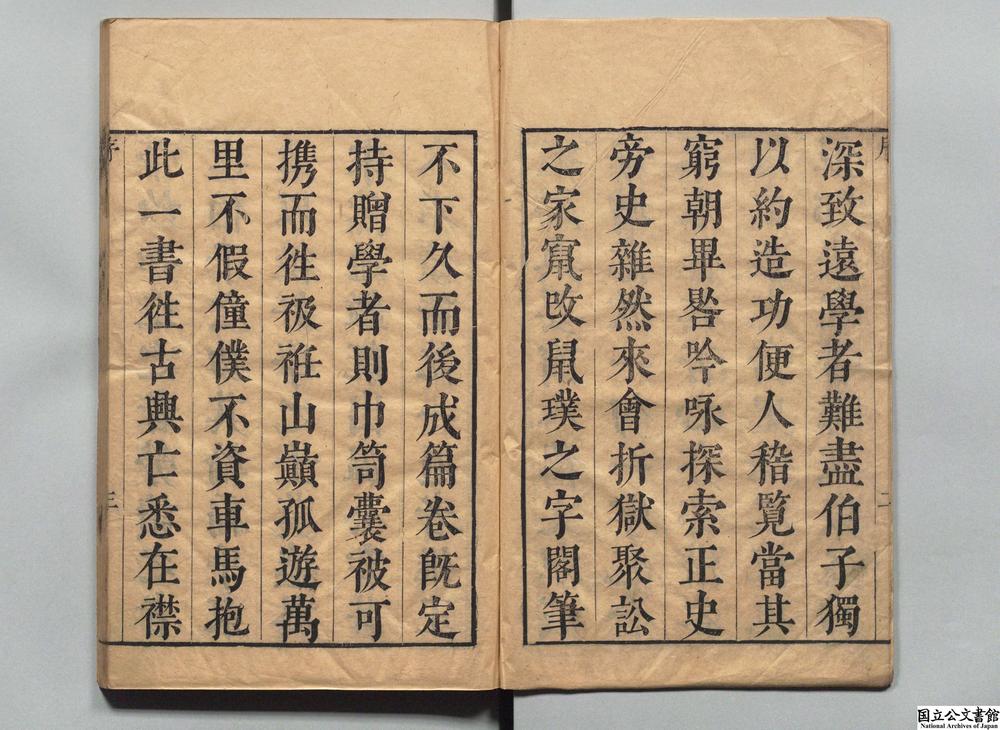 深致遠學者難盡伯子獨
以約造功便人稽覽當其
窮朝畢晷吟咏探索正史
旁史雜然來會折獄聚訟
之家窮攺鼠璞之字閣筆
不下久而後成篇卷旣定
持贈學者則巾笥囊被可
携而徃衱袵山巔孤遊萬
里不假僮僕不資車馬抱
此一書徃古興亡悉在襟
序
二
三
国立公文書館
National Archives of Japan